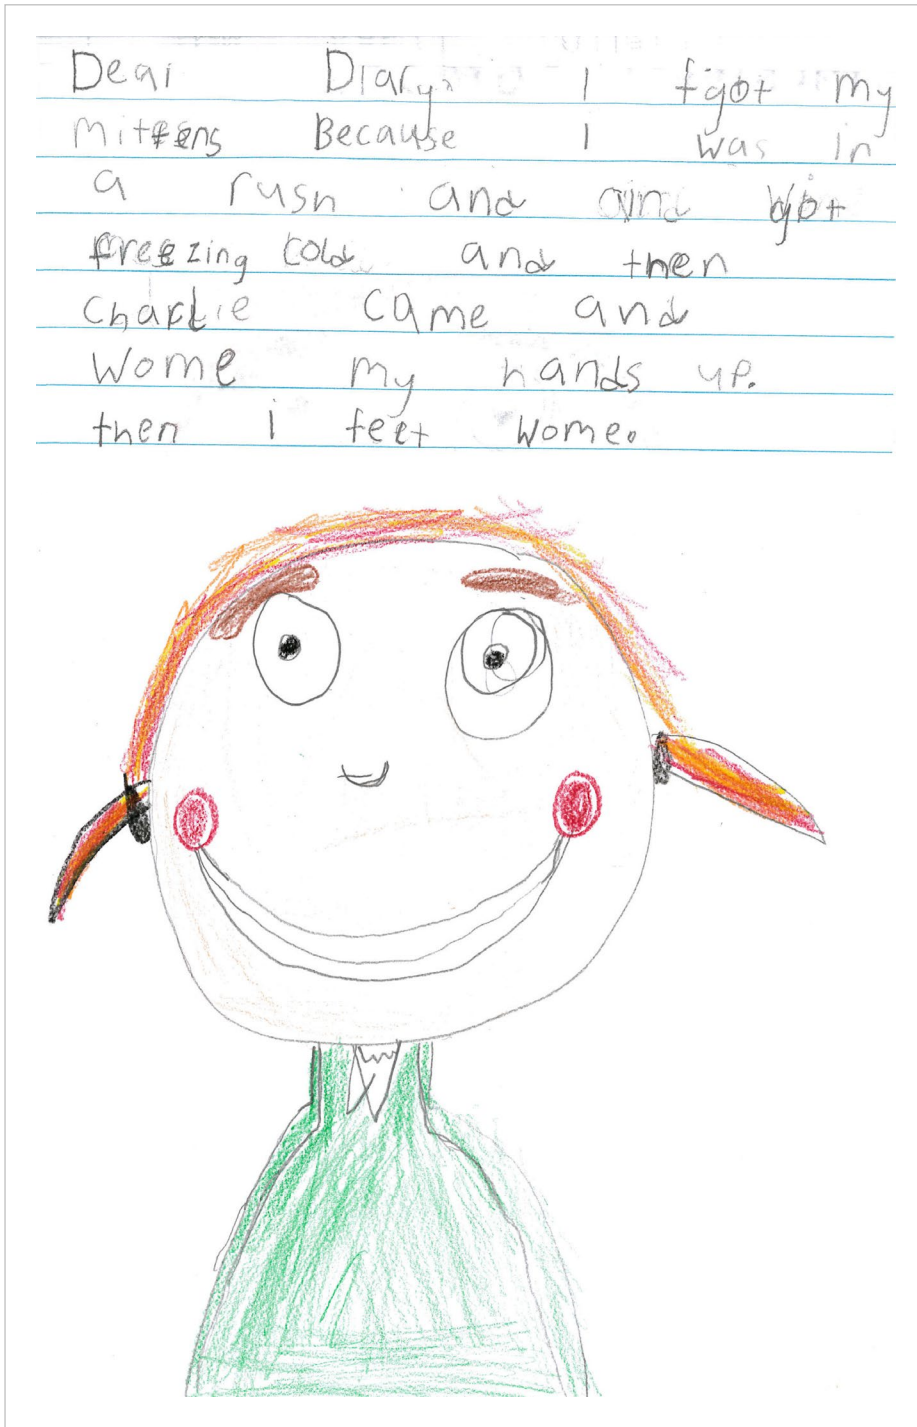 Dear Diary, I fgot my
Mittens Because I was in
a rush and and got
freezing cold and then
Charlie came and
Wome my hands up.
then I feet wome.